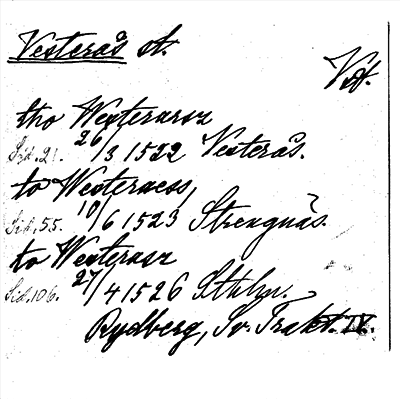 Vesterås st.
Vst.
tho Westerarsz
Sid. 21. 26/3 1522 Vesterås.
to Westeraess,
Sid. 55. 10/6 1523 Strengnäs.
to Westerasz
Sid. 106. 27/4 1526 Sthlm.
Rydberg, Sv. Trakt. IV.